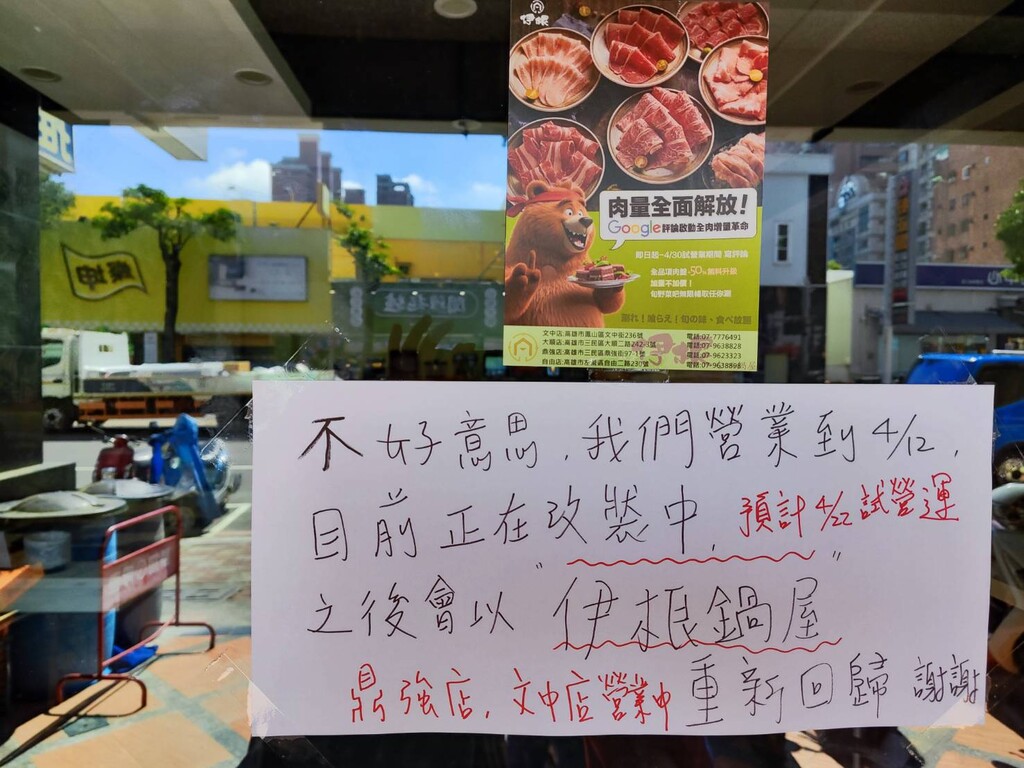 伊根
肉量全面解放!
Google評論啟動全肉增量革命
即日起~4/30試營業期間 寫評論
全品項肉量+50%無料升級
加量不加價!
旬野菜吧無限補取任你涮
文中店:高雄市鳳山區文中街236號 電話:07-7776491
大順店:高雄市三民區大順二路242-3號 電話:07-9638828
鼎強店:高雄市三民區鼎強街97-1號 電話:07-9623323
自由店:高雄市左營區自由二路230號 電話:07-9638898
不好意思,我們營業到4/12,
目前正在改裝中,預計4/22試營運
之後會以"伊根鍋屋"
鼎強店,文中店營業中 重新回歸 謝謝